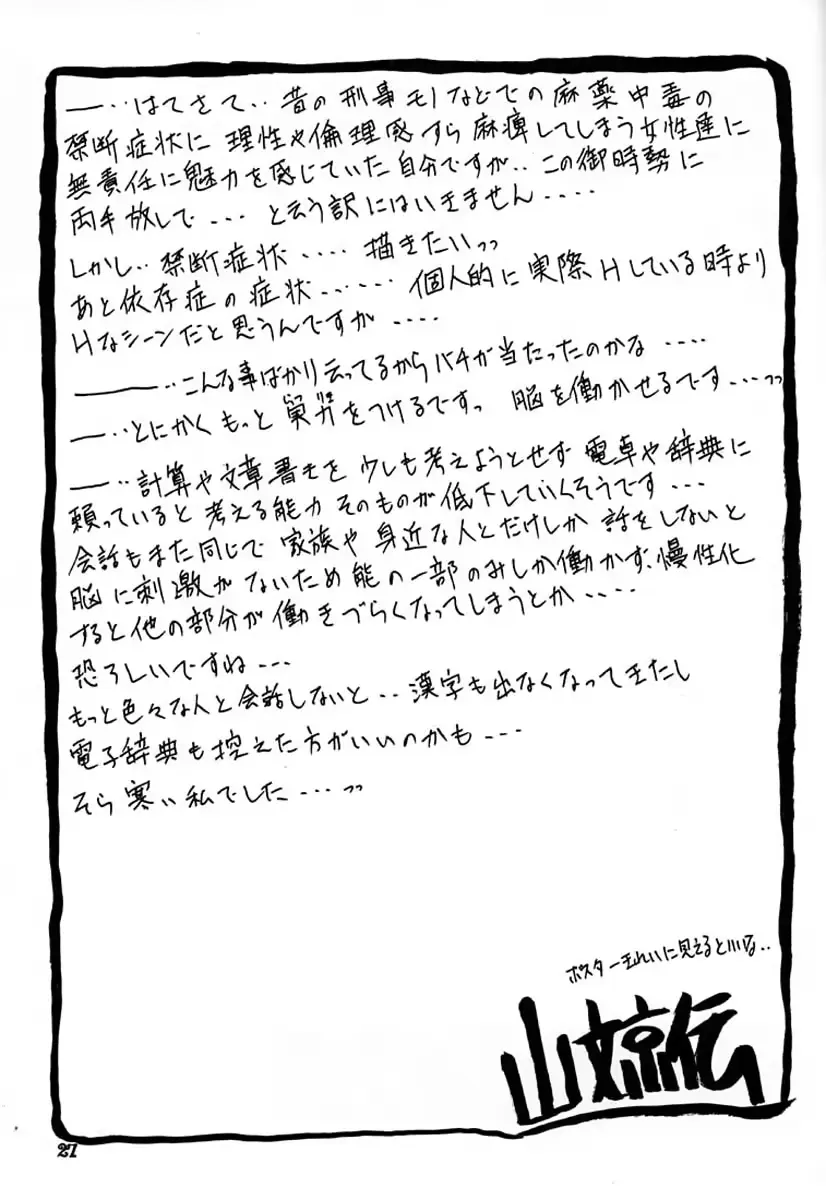 ―‥はてさて‥昔の刑事モノなどでの麻薬中毒の
禁断症状に理性や倫理感すら麻痺してしまう女性達に
無責任に魅力を感じていた自分ですが‥この御時勢に
両手放しで‥‥と云う訳にはいきません‥‥
しかし‥禁断症状‥‥描きたいッッ
あと依存症の症状‥‥‥個人的に実際Hしている時より
Hなシーンだと思うんですが‥‥
――‥こんな事ばかり云ってるからバチが当たったのかな‥‥
―‥とにかくもっとをつけるですっ 脳を働かせるです‥‥ッッ
―‥計算や文章書きを少しも考えようとせず電卓や辞典に
頼っていると考える能力そのものが低下していくそうです‥‥
会話もまた同じで家族や身近な人とだけしか話をしないと
脳に刺激がないため能の一部のみしか働かず、慢性化
すると他の部分が働きづらくなってしまうとか‥‥
恐ろしいですね‥‥
もっと色々な人と会話しないと‥漢字も出なくなってきたし
電子辞典も控えた方がいいのかも‥‥
そら寒い私でした‥‥ッッ
ポスターきれいに見えるといいな‥
山京伝
27